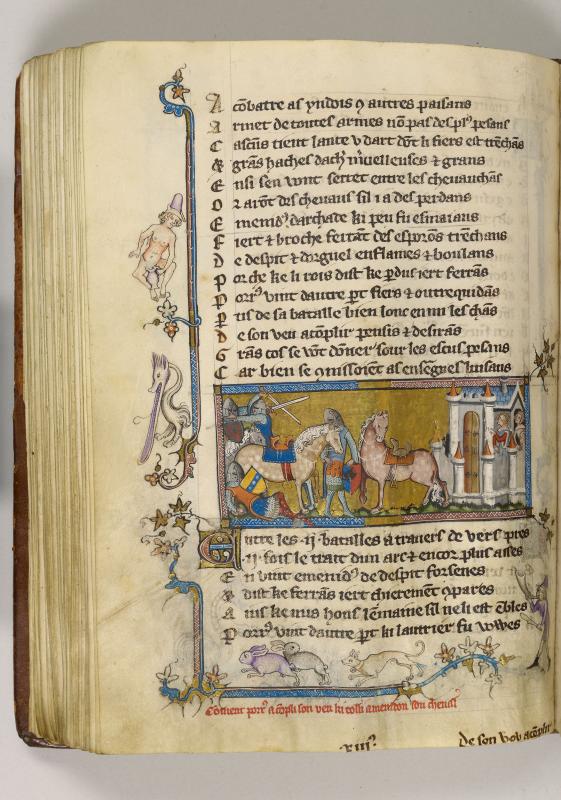 A cōbatre as yndois ꝯ autres paisans
Armet de toutes armes nō pas des plꝰ pesans
Cascūs tient lante v dart dōt li fiers est trēchās
& grans haches dach mͥuelleuses & grans
Ensi sen vont serret entre les cheuauchās
Or arōt des cheuaus sil i a des perdans
Emenidꝰ darchade ki peu fu esmaians
Fiert & broche ferrāt des esporōs trēchans
De despit & dorguel enflames & boulans
Por che ke li rois dist ke perdus iert ferrās
Porrꝰ vint dautre part fiers & outrequidās
Pus de sa batalle bien lonc en mi les chās
De son veu acōplir pensis & desirās
Grās cos se vōt dōner sour les escus pesans
Car bien se ꝯnissoient as ensegnes luisans
Entre les .ij. batalles a trauers de vers pres
.ij. fois le trait dun arc & encor plus asses
En vint emenidꝰ de despit forsenes
& dist ke ferrās iert chierement ꝯpares
Ains ke nus hons lēmaine sil ne li est ēbles
Porrꝰ vint dautre part ki lautrier fu vowes
Cōment porrꝰ acōpli son veu ki tolli a meniton son cheual
.xiijꝰ.
de son vou acōplir